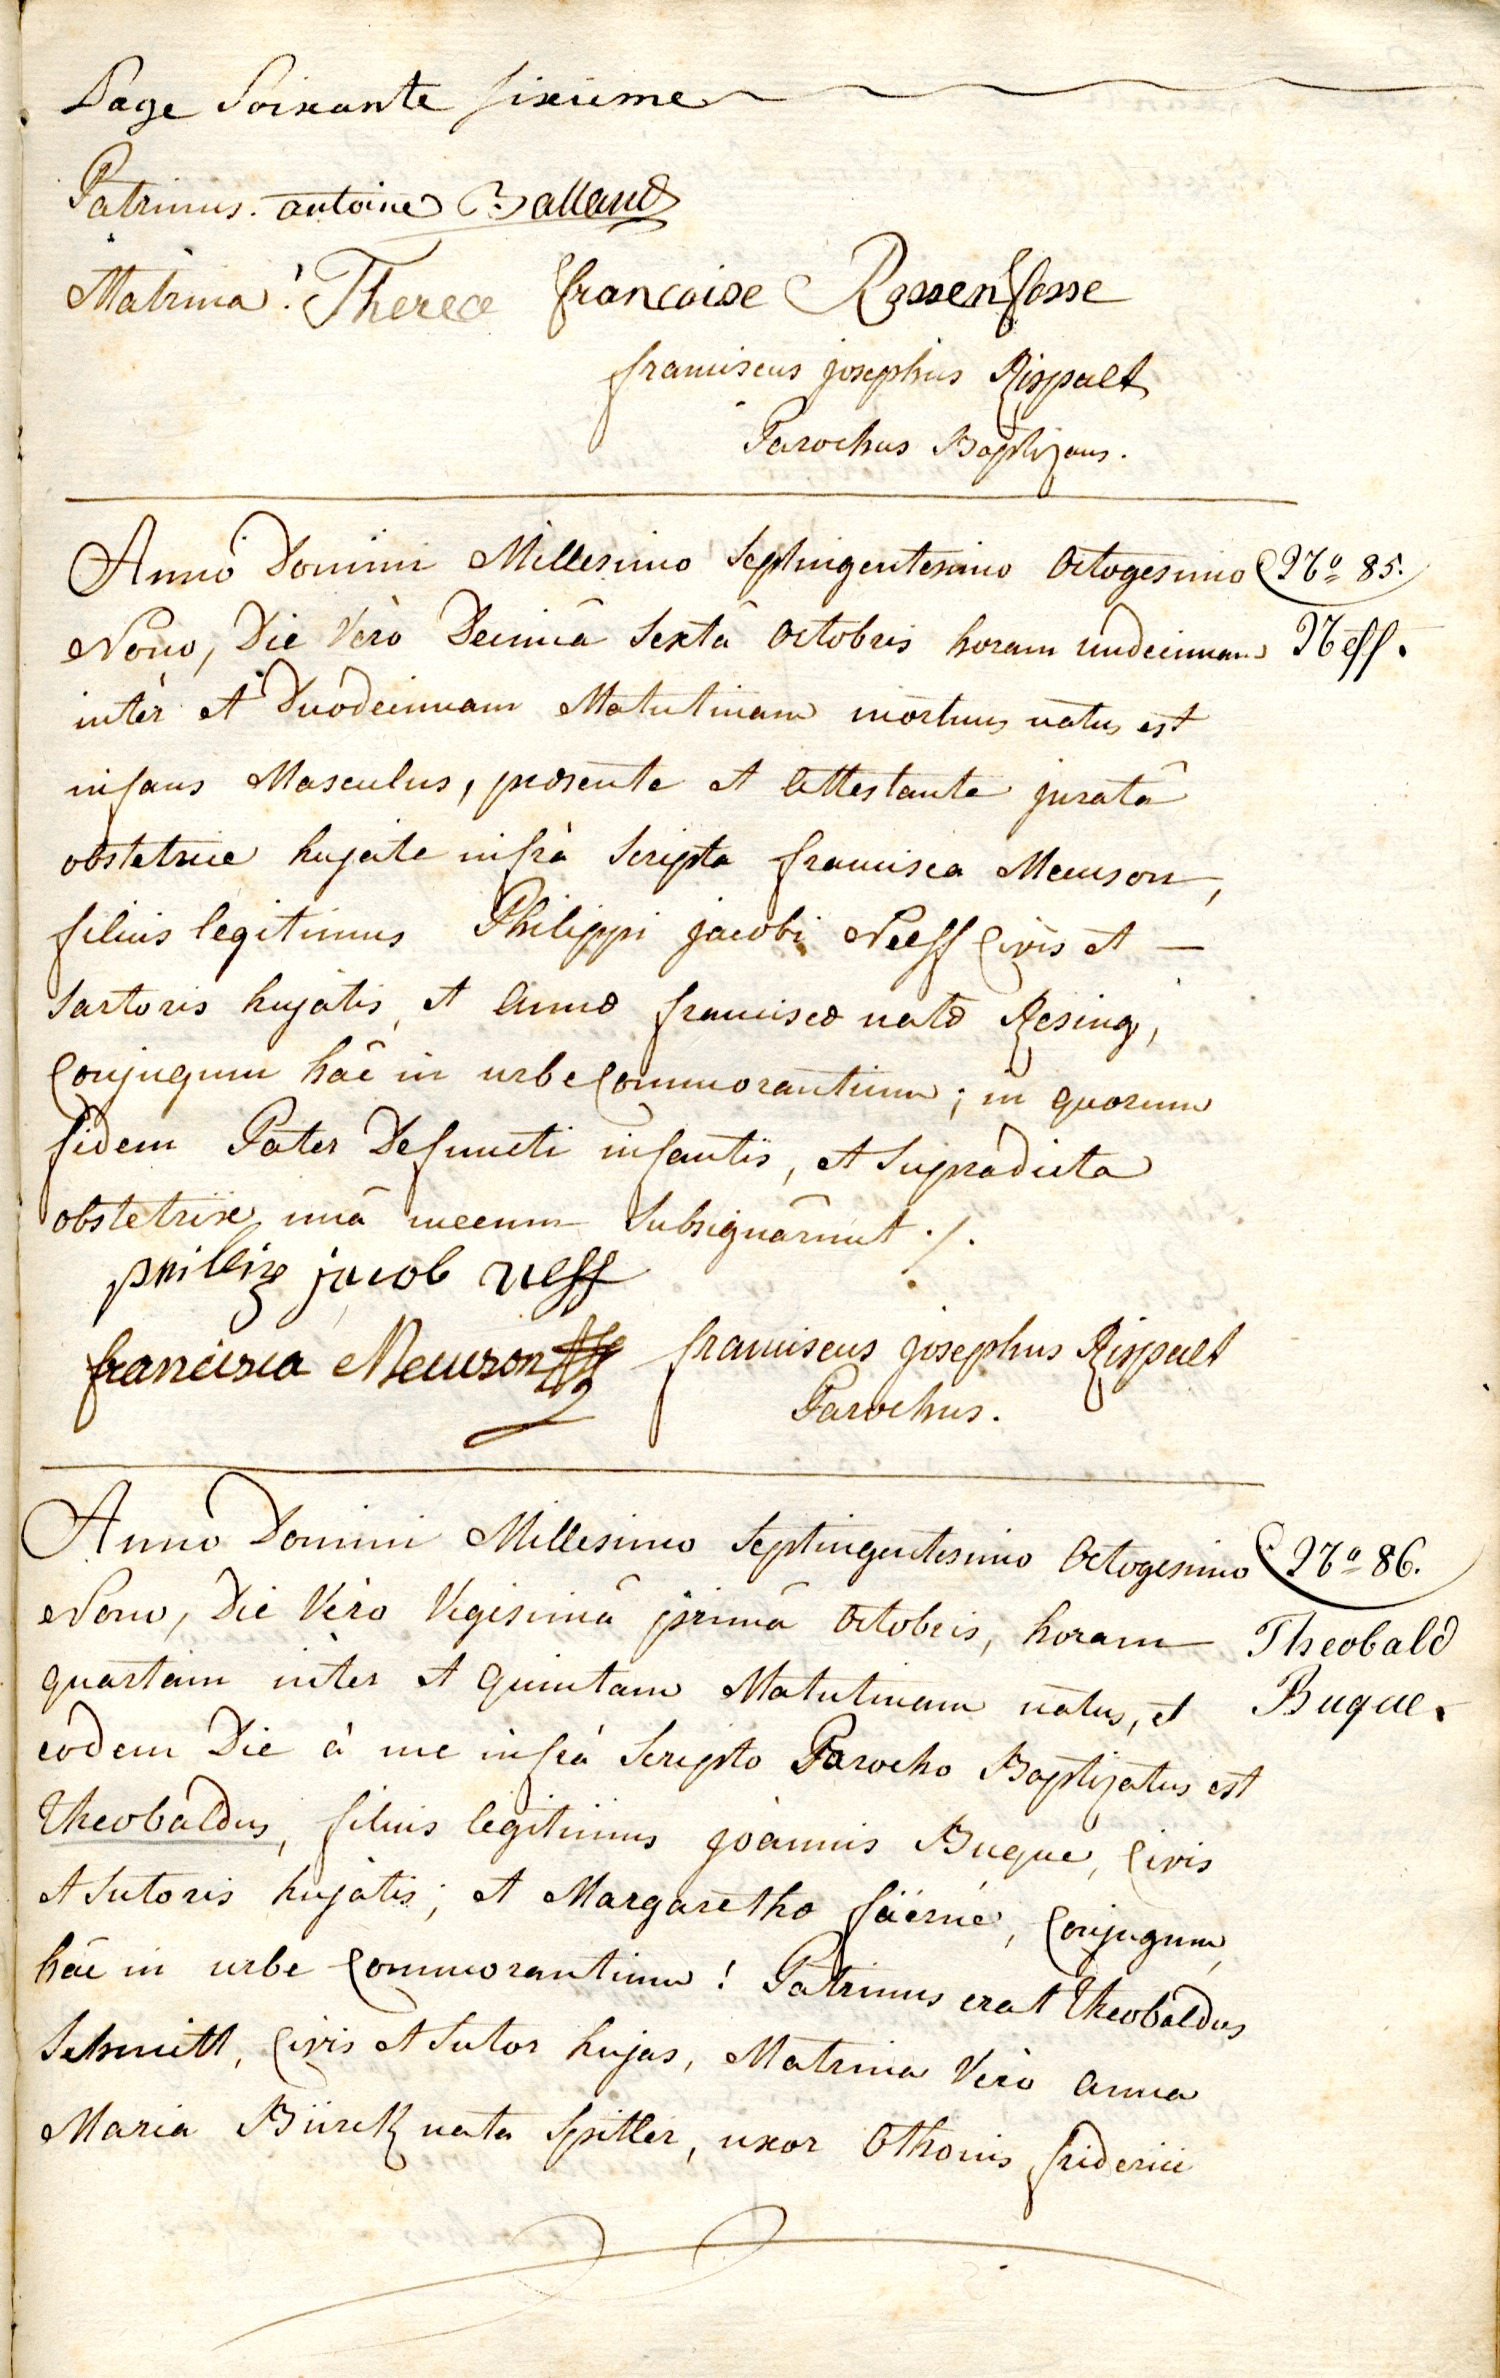 Page Soixante Sixieme
Patrinus. antoine Balland
Matrina! Therece francoise Rossenfosse
franciscus josephus Rispalt
Parochus Baptizans.
Anno Domini Millesimo Septingentesimo Octogesimo
Nº 85.
Nono, Die Vero Decimâ Sextâ Octobris horam undecimam
Neff.
inter et Duodecimam Matutinam mortuus natus est
infans Masculus, præsente et attestante juratâ
obstetrice hujate infrà Scripta francisca Meuson,
filius legitimus Philippi jacobi Neeff Civis et —
Sartoris hujatis, et annæ franciscæ natæ Resing,
Conjugum hâc in urbe Commorantium; in quorum
fidem Pater Defuncti infantis, et Supradicta
obstetrix unâ mecum Subsignârunt ./.
phillip jacob neff
francisca Meuson franciscus josephus Rispalt
Parochus.
Anno Domini Millesimo Septingentesimo Octogesimo
Nº 86.
Nono, Die Vero Vigesimâ primâ Octobris, horam
Theobald
quartam inter et quintam Matutinam natus, et
Buque.
eodem Die à me infrà Scripto Parocho Baptizatus est
Theobaldus, filius legitimus joannis Buque, Civis
et Sutoris hujatis; et Margarethæ , Conjugum,
hâc in urbe Commorantium! Patrinus erat Theobaldus
Schmitt, Civis et Sutor hujas, Matrina Vero anna
Maria Bürck nata Spitler, uxor Othonis friderici